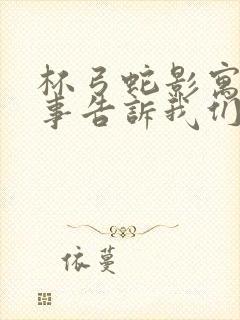 杯弓蛇影寓
事告訴我们
依蔓